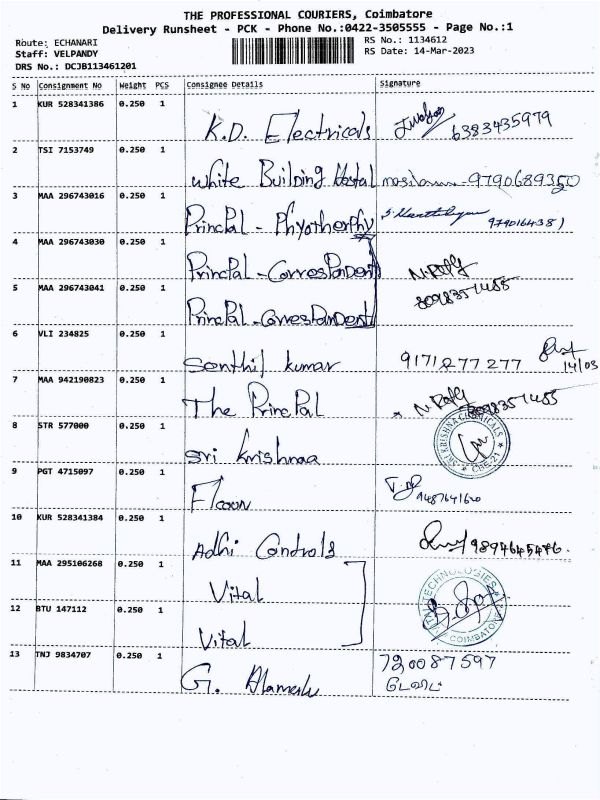 THE PROFESSIONAL COURIERS, Coimbatore
Delivery Runsheet - PCK - Phone No.:0422-3505555 - Page No.:1
Route: ECHANARI RS No.: 1134612
Staff: VELPANDY RS Date: 14-Mar-2023
DRS No.: DCJB113461201
S No Consignment No Weight PCS Consignee Details Signature
1 KUR 528341386 0.250 1 K.D. Electricals 6383435979
2 TSI 7153749 0.250 1 White Building Hostal 9790689350
3 MAA 296743016 0.250 1 PrincPal - Phyotherphy
4 MAA 296743030 0.250 1 PrincPal - Correspondent
5 MAA 296743041 0.250 1 PrincPal - Correspondent 8098351485
6 VLI 234825 0.250 1 Senthil kumar 9171277277 14/03
7 MAA 942190823 0.250 1 The PrincPal 8098351485
8 STR 577000 0.250 1 Sri Krishnaa SRI KRISHNA CHEMICALS CBE-21
9 PGT 4715097 0.250 1
10 KUR 528341384 0.250 1 Adhi Controls
11 MAA 295106268 0.250 1 Vital VITAL TECHNOLOGIES COIMBATORE
12 BTU 147112 0.250 1 Vital
13 TNJ 9834707 0.250 1 G. Alamelu 720087597